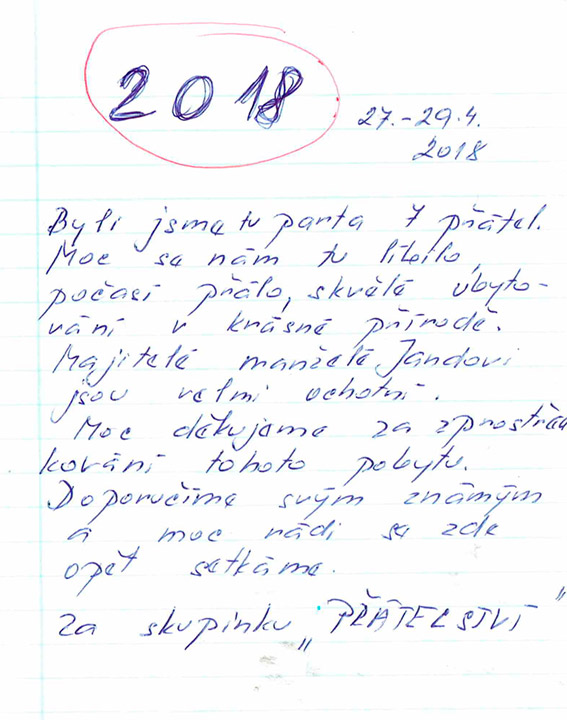 2018
27.-29.4.
2018
Byli jsme tu parta 7 přátel.
Moc se nám tu líbilo,
počasí přálo, skvělé ubyto-
vání v krásné přírodě.
Majitelé manželé Jandovi
jsou velmi ochotní.
Moc děkujeme za zprostřed
kování tohoto pobytu.
Doporučíme svým známým
a moc rádi se zde
opět setkáme.
Za skupinku „PŘÁTELSTVÍ"